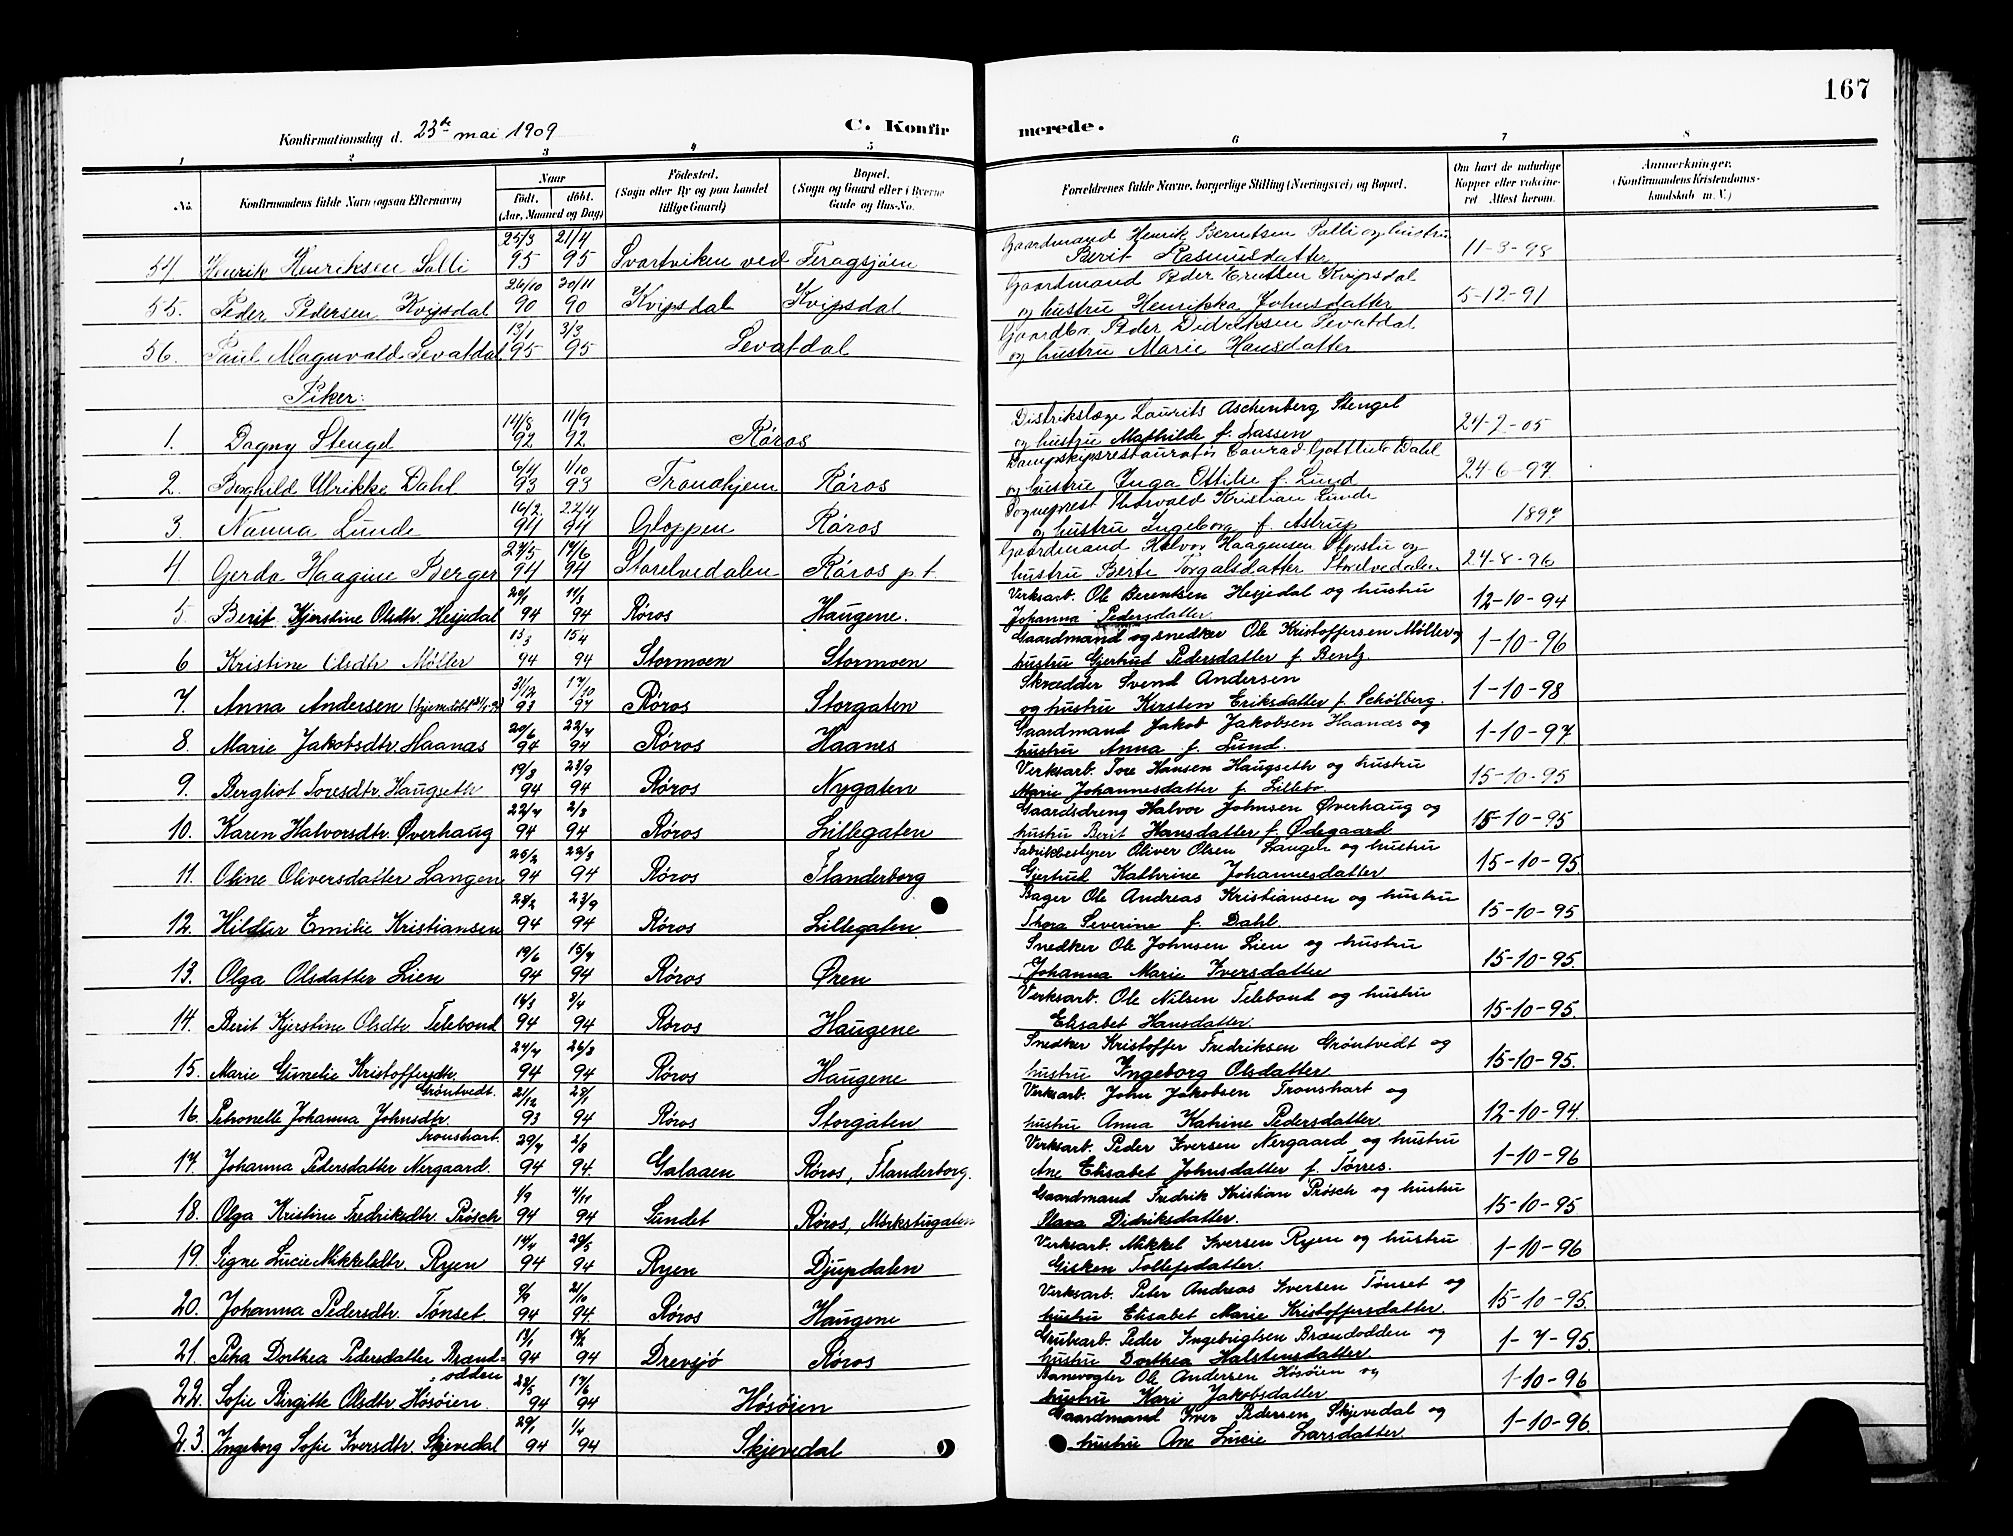 167
Konfirmationsdag d. 23de mai 1909
C. Konfirmerede.
1 2 3 4 5 6 7 8
No. Konfirmandens fulde Navn (ogsaa Efternavn) Naar født. døbt. (Aar, Maaned og Dag) Fødested. (Sogn eller By og paa Landet tillige Gaard) Bopæl. (Sogn og Gaard eller i Byerne Gade og Hus-No. Forældrenes fulde Navne, borgerlige Stilling (Næringsvei) og Bopæl. Om havt de naturlige Kopper eller vakcineret. Attest herom. Anmerkninger. (Konfirmandens Kristendomskundskab m. V.)
54 Henrik Henriksen Solli 25/3 95 21/4 95 Svartviken ved Feragsjøen Gaardmand Henrik Berntsen Solli og hustru Berit Rasmusdatter 11-3-98
55. Peder Pedersen Kvipsdal 26/10 90 30/11 90 Kvipsdal Kvipsdal Gaardmand Peder Knutsen Kvipsdal og hustru Henrikka Johnsdatter 5-12-91
56. Paul Magnvald Levatdal 13/1 95 3/3 95 Levatdal Gaardbr. Peder Didriksen Levatdal og hustru Marie Hansdatter
Piker:
1. Dagny Stengel 14/8 92 11/9 92 Røros Distriktslæge Laurits Aschenberg Stengel og hustru Mathilde f. Lassen 24-7-05
2. Berghild Ulrikke Dahl 6/4 93 1/10 93 Trondhjem Røros Dampskipsrestauratør Conrad Gottlieb Dahl og hustru Inga Ottilie f. Lund 24-6-97
3. Nanna Lunde 16/2 94 22/4 94 Gloppen Røros Sogneprest Thorvald Kristian Lunde og hustru Ingeborg f. Astrup 1897
4. Gerda Haagine Berger 27/5 94 17/6 94 Storelvedalen Røros p t. Gaardmand Halvor Haagensen og hustru Berte Storelvedalen 24-8-96
5. Berit Kjerstine Olsdtr Hesjedal 20/1 94 11/3 94 Røros Haugene. Verksarb. Ole Berentsen Hesjedal og hustru Johanna Pedersdatter. 12-10-94
6 Kristine Olsdtr Møller 13/3 94 15/4 94 Stormoen Stormoen Gaardmand og snedker Ole Kristoffersen Møller og hustru Gjertrud Pedersdatter f. Bentz. 1-10-96
7. Anna Andersen (hjemdøbt 31/12-93) 31/12 93 17/10 97 Røros Storgaten Skrædder Svend Andersen og hustru Kirsten Eriksdatter f. Schølberg. 1-10-98
8. Marie Jakobsdtr. Haanæs 20/6 94 22/7 94 Røros Haanes Gaardmand Jakob Jakobsen Haanæs og hustru Anna f. Lund. 1-10-97
9. Bergliot Toresdtr. Haugseth 19/8 94 23/9 94 Røros Nygaten Verksarb. Tore Hansen Haugseth og hustru Marie Johannesdatter f. Lillebo. 15-10-95
10. Karen Halvorsdtr. Øverhaug 22/7 94 2/8 94 Røros Lillegaten Gaardsdreng Halvor Johnsen Øverhaug og hustru Berit Hansdatter f. Ødegaard 15-10-95
11. Oline Oliversdatter Langen 25/2 94 22/3 94 Røros Flanderborg Fabrikbestyrer Oliver Olsen Langen og hustru Gjertrud Kathrine Johannesdatter 15-10-95
12. Hildur Emilie Kristiansen 28/2 94 23/9 94 Røros Lillegaten Bager Ole Andreas Kristiansen og hustru Thora Severine f. Dahl. 15-10-95
13. Olga Olsdatter Lien 19/6 94 15/7 94 Røros Øren Snedker Ole Johnsen Lien og hustru Johanna Marie Iversdatter 15-10-95.
14. Berit Kjerstine Olsdtr Telebond 16/3 94 8/4 94 Røros Haugene Verksarb. Ole Nilsen Telebond og hustru Elisabet Hansdatter. 15-10-95.
15. Marie Gunelie Kristoffersdtr. Grøntvedt. 24/7 94 26/8 94 Røros Haugene Snedker Kristoffer Fredriksen Grøntvedt og hustru Ingeborg Olsdatter 15-10-95.
16. Petronelle Johanna Johnsdtr. Tronshart. 21/12 93 28/1 94 Røros Storgaten Verksarb. John Jakobsen Tronshart og hustru Anna Katrine Pedersdatter. 12-10-94.
17. Johanna Pedersdatter Nergaard. 29/7 94 2/8 94. Galaaen Røros, Flanderborg. Verksarb. Peder Iversen Nergaard og hustru Ane Elisabet Johnsdatter f. Tørres. 1-10-96
18. Olga Kristine Fredriksdtr. Prøsch 1/9 94 4/11 94 Sundet Røros, Mørkstugaten Gaardmand Fredrik Kristian Prøsch og hustru Didriksdatter. 15-10-95
19. Signe Lucie Mikkelsdtr. Ryen 14/4 94 20/5 94 Ryen Djupdalen Verksarb. Mikkel Iversen Ryen og hustru Gisken Tollefsdatter. 1-10-96
20. Johanna Pedersdtr. Tønset. 9/9 94 21/10 94. Røros Haugene Verksarb. Peter Andreas Iversen Tønset og hustru Elisabet Marie Kristoffersdatter. 15-10-95.
21. Petra Dorthea Pedersdatter Brændodden 13/1 94 18/2 94 Drevsjø Røros Grubearb. Peder Ingebrigtsen Brændodden og hustru Dorthea Halstensdatter. 1-7-95
22. Sofie Birgitte Olsdtr Høsøien. 28/5 94 17/6 94 Høsøien Banevogter Ole Andersen Høsøien og hustru Kari Jakobsdatter 1-10-96
23. Ingeborg Sofie Iversdtr. Skjevedal 29/1 94 1/4 94 Skjevedal Gaardmand Iver Pedersen Skjevedal og hustru Ane Lucie Larsdatter. 1-10-96.